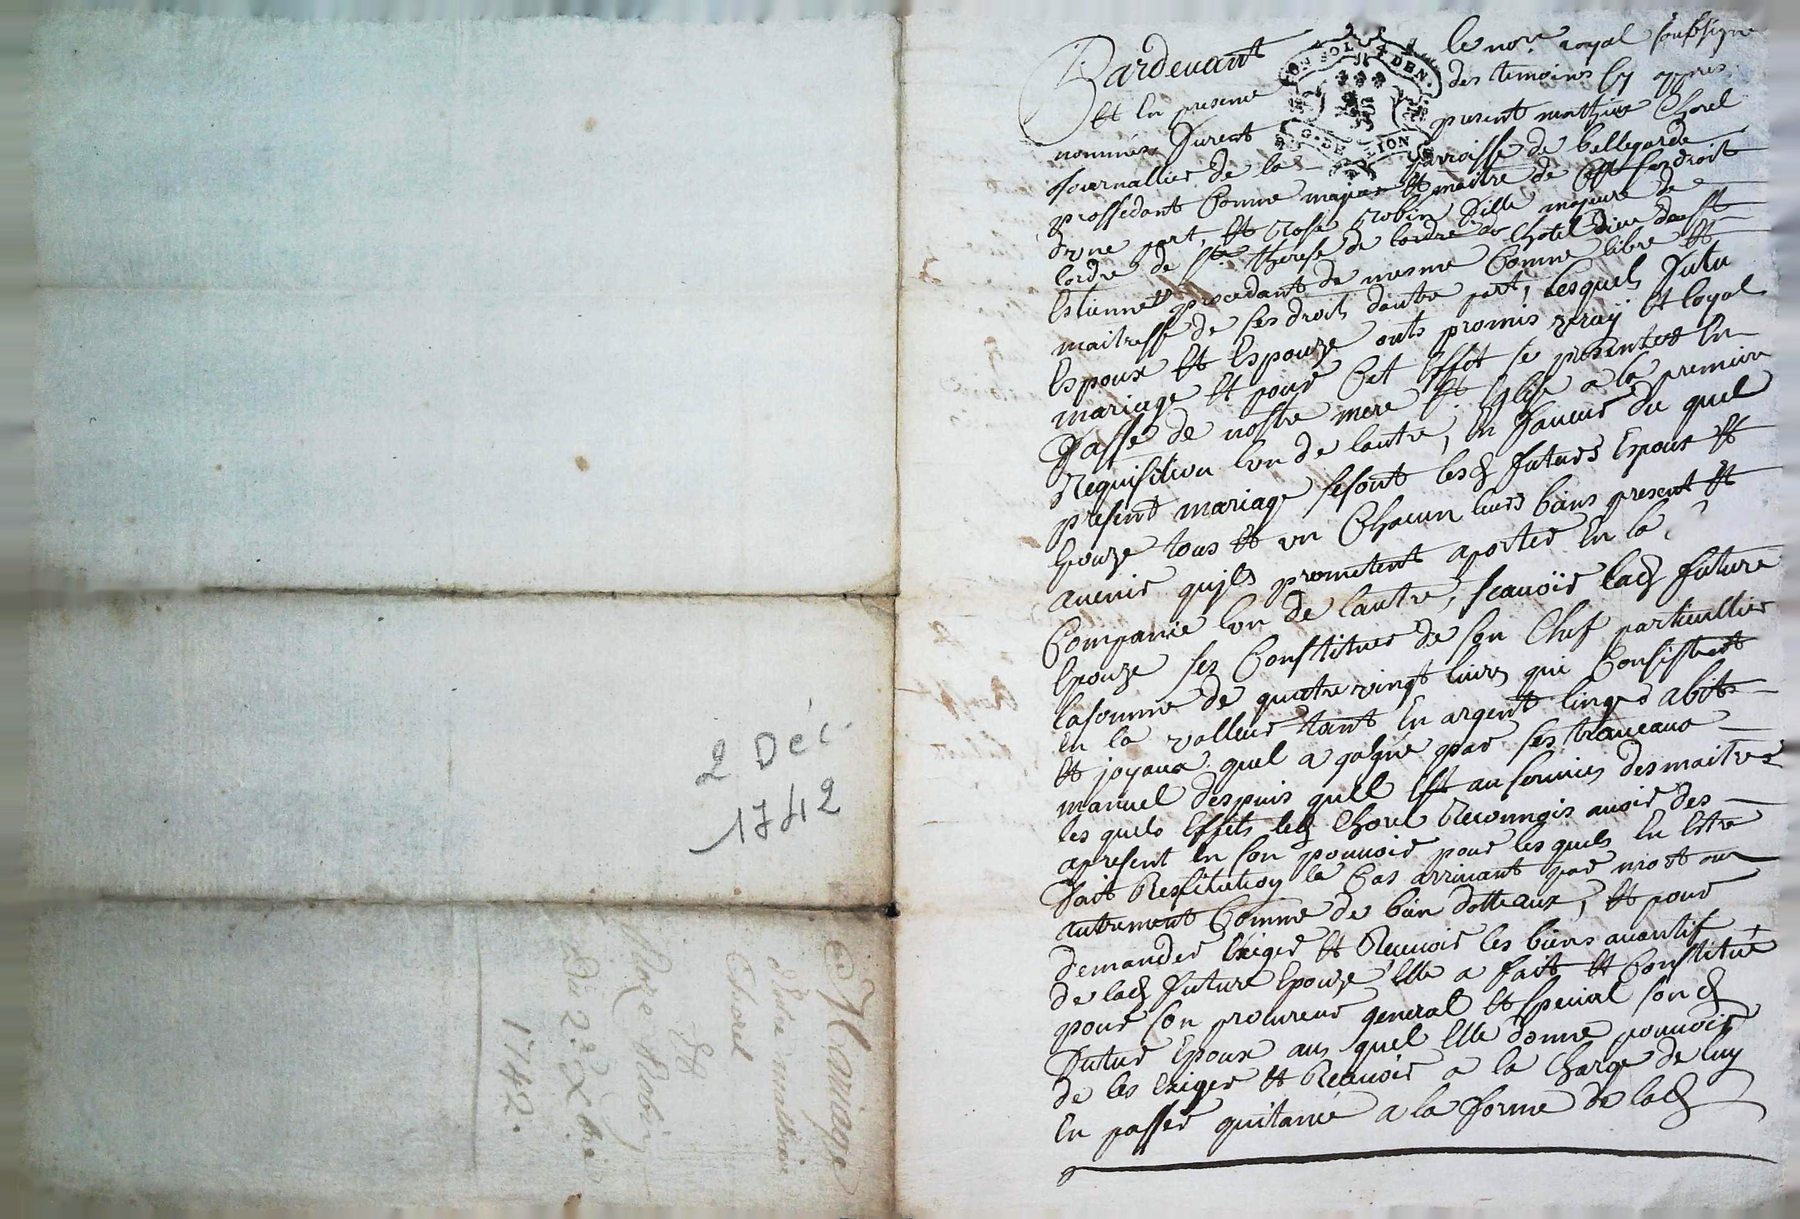 2 Déc.
1742
Mariage
d'Entre mathieu
Chorel
Et
Roze Robin
Du 2e Xbre
1742.
Pardevant le nore royal soubsigné
Et En presence des temoins Cy apres
nommés furent present mathieu Chorel
Journallier de la parroisse de bellegarde
proссedant Comme majeur Et maitre de Ces droit
d'vne part, Et Rose Robin fille majeure de
lordre de Ste therese de lordre de lhotel dieu de St
Estienne procedant de mesme Comme libre Et
maitresse de ses droits dautre part, Lesquels futu
Espoux Et Espouze onts promis vray Et loyal
mariage Et pour Cet Effet se presenter En
fasse de nostre mere Ste Eglise a la premiere
Requisition lvn de lautre, En faveur du quel
present mariage se sont lesd futurs Epoux Et
Epouze tous Et vn Chacun leurs biens present Et
avenir qu'jls promettent aporter En la
Compagnie lvn de lautre, scauoir lad future
Epouze sez Constituer de son Chef particullier
la somme de quatre vingt livres qui Consistent
En la valleur tant En argent linges abits
Et joyaux quel a gagné par ses traveaux
manuel despuis quell Est au services des maitres
les quels Effets led Chorel Reconnois avoir des
apresent En son pouvoir pour les quels En Estre
fait Restitution le Cas arrivant par mort ou
autrement Comme de bien dotteaux, Et pour
demander Exiger Et Recevoir les biens avantif
de lad future Epouze Elle a fait Et Constitué
pour son procureur general Et special son d
futur Epoux au quel Elle donne pouvoir
de les Exiger Et Recevoir a la Charge de luy
En passer quitance a la forme de lad